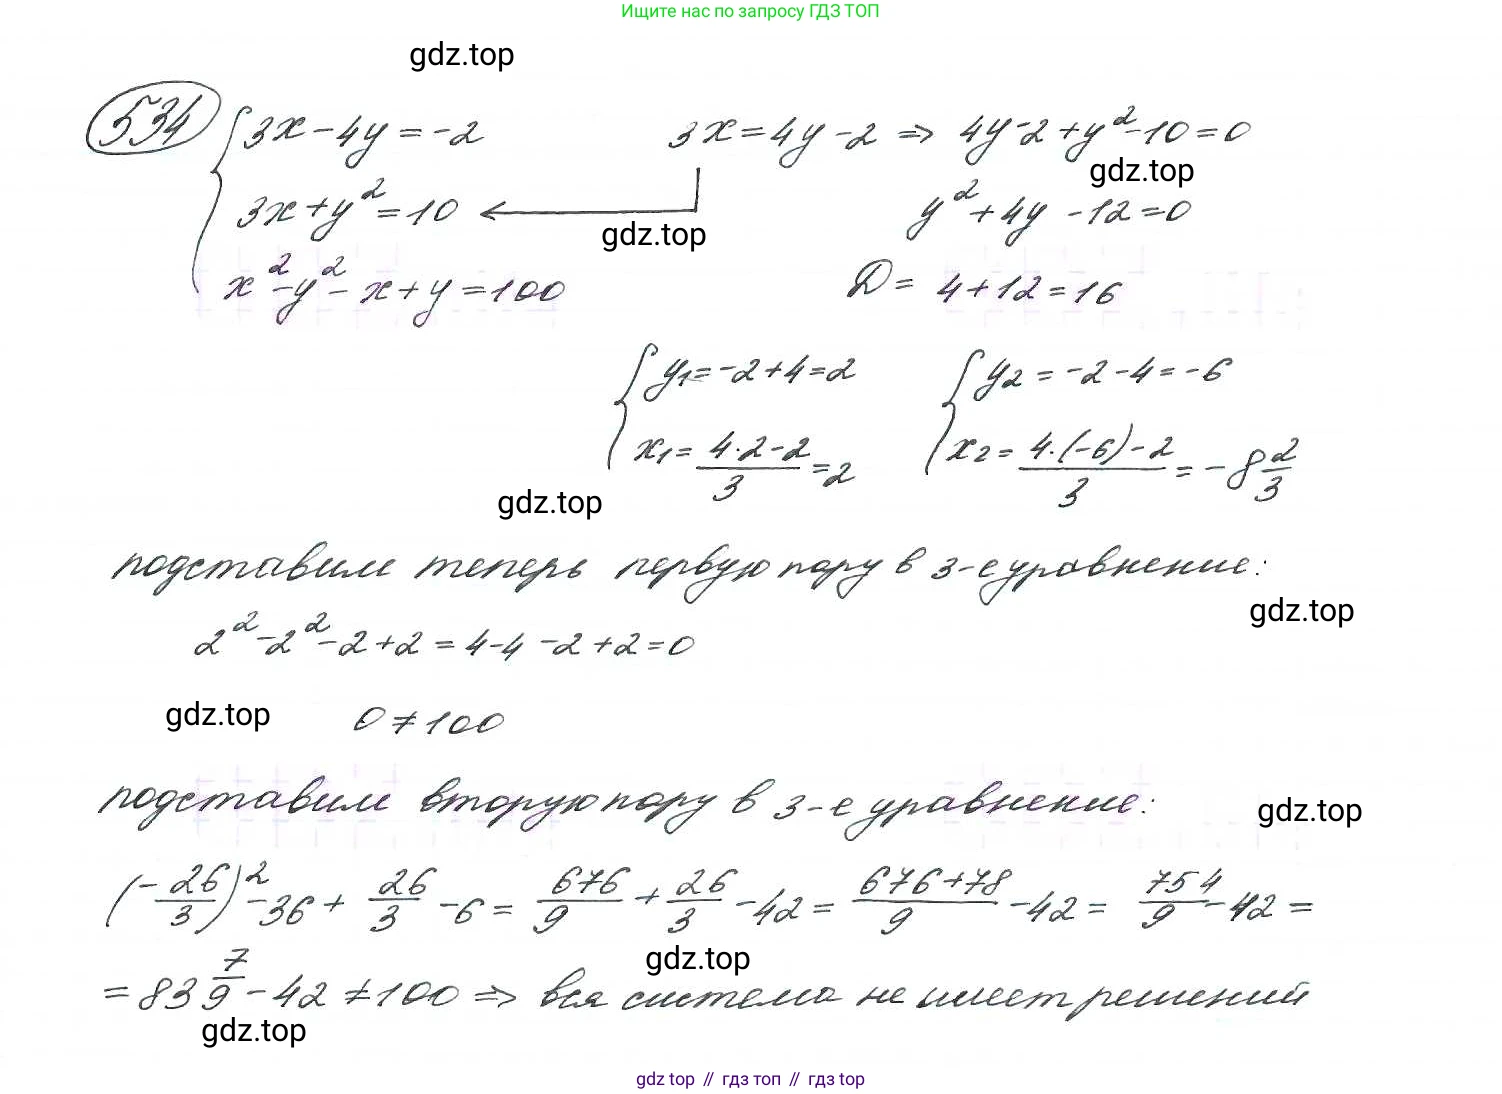 Ищите нас по запросу ГДЗ ТОП
gdz.top
534
3x - 4y = -2   3x = 4y - 2 ⇒ 4y - 2 + y² - 10 = 0
gdz.top
3x + y² = 10   y² + 4y - 12 = 0
gdz.top
x² - y² - x + y = 100   D = 4 + 12 = 16
y₁ = -2 + 4 = 2   y₂ = -2 - 4 = -6
x₁ = (4·2 - 2)/3 = 2   x₂ = (4·(-6) - 2)/3 = -8 2/3
gdz.top
подставим теперь первую пару в 3-е уравнение:
gdz.top
2² - 2² - 2 + 2 = 4 - 4 - 2 + 2 = 0
gdz.top
0 ≠ 100
подставим вторую пару в 3-е уравнение:
gdz.top
(-26/3)² - 36 + 26/3 - 6 = 676/9 + 26/3 - 42 = (676 + 78)/9 - 42 = 754/9 - 42 =
gdz.top
= 83 7/9 - 42 ≠ 100 ⇒ вся система не имеет решений
gdz.top
gdz top // гдз топ // гдз top